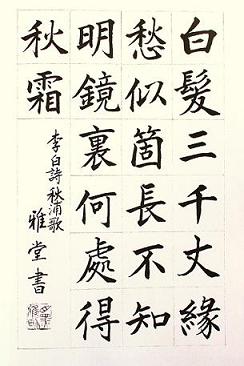 白髮三千丈緣
愁似箇長不知
明鏡裏何處得
秋霜
李白詩秋浦歌
雅堂書